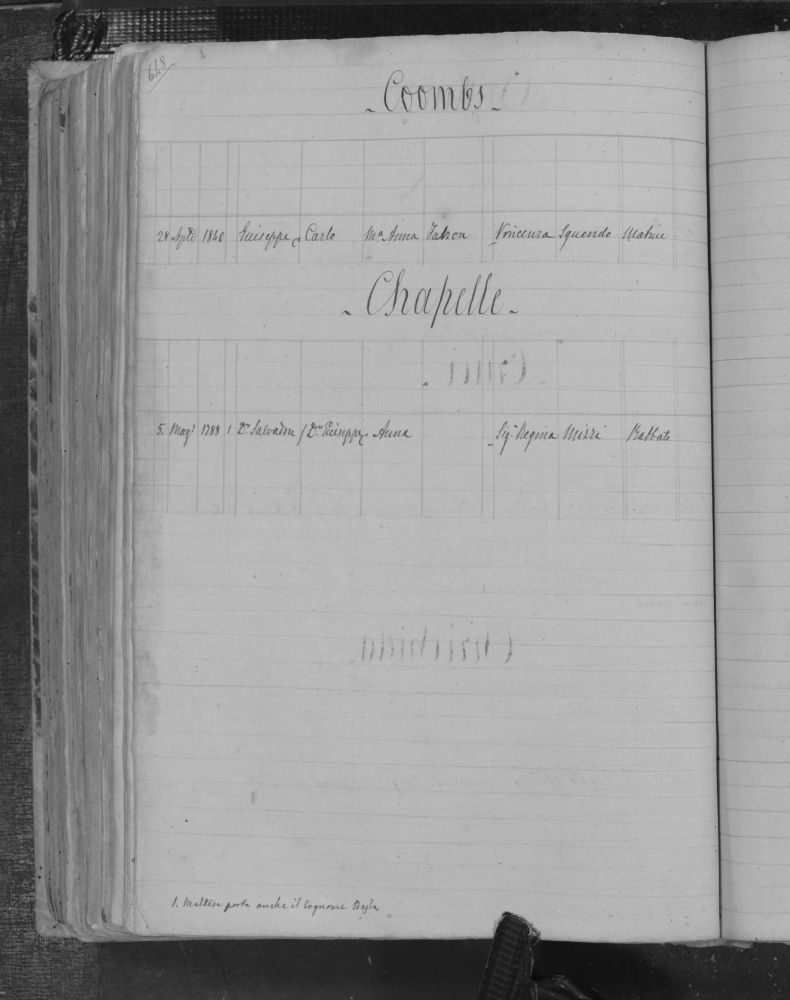 648
- Coombs -
28 Aple 1840 Giuseppe Carlo Ma Anna Vincenza Sguendo Matrice
- Chapelle -
5. Magº 1788 1 Dr Salvadore Dr Giuseppe Anna Sigª Regina Mizzi Rabbato
1. Maltese porta anche il cognome